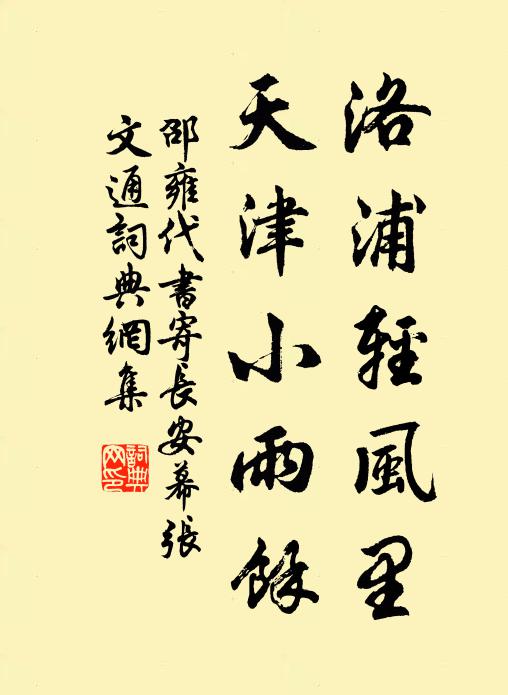 洛浦輕風里
天津小雨餘
邵雍代書寄長安幕張
文通詞典網集
詞典网印